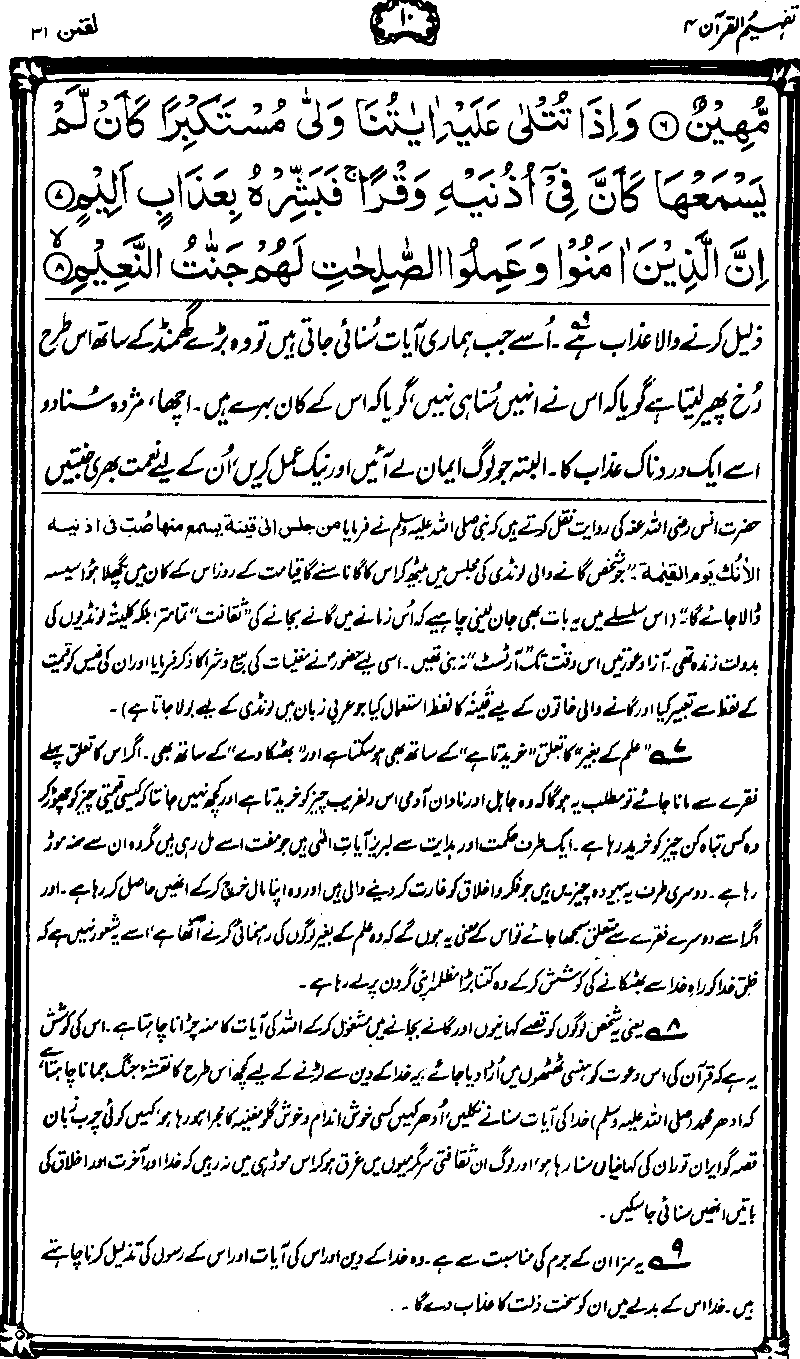 تفہیم القرآن ۴
۱۰
لقمٰن ۳۱
مُّهِيْنٌ ۶ وَاِذَا تُتْلٰى عَلَيْهِ اٰيٰتُنَا وَلّٰى مُسْتَكْبِرًا كَاَنْ لَّمْ
يَسْمَعْهَا كَاَنَّ فِيْٓ اُذُنَيْهِ وَقْرًا ۚ فَبَشِّرْهُ بِعَذَابٍ اَلِيْمٍ ۷
اِنَّ الَّذِيْنَ اٰمَنُوْا وَعَمِلُوا الصّٰلِحٰتِ لَهُمْ جَنّٰتُ النَّعِيْمِ ۸ۙ
ذلیل کرنے والا عذاب ہے۹۔ اُسے جب ہماری آیات سُنائی جاتی ہیں تو وہ بڑے گھمنڈ کے ساتھ اس طرح
رُخ پھیر لیتا ہے گویا کہ اس نے انہیں سُنا ہی نہیں، گویا کہ اس کے کان بہرے ہیں۔ اچھا، مژدہ سُنا دو
اسے ایک دردناک عذاب کا۔ البتہ جو لوگ ایمان لے آئیں اور نیک عمل کریں، اُن کے لیے نعمت بھری جنتیں
حضرت انس رضی اللہ عنہ کی روایت نقل کرتے ہیں کہ نبی صلی اللہ علیہ وسلم نے فرمایا من جلس الى قينة يسمع منها صُبّ فی اذنيه
الاٰنُك يوم القيٰمة۔ ”جو شخص گانے والی لونڈی کی مجلس میں بیٹھ کر اس کا گانا سنے گا قیامت کے روز اس کے کان میں پگھلا ہوا سیسہ
ڈالا جائے گا۔“ (اس سلسلے میں یہ بات بھی جان لینی چاہیے کہ اُس زمانے میں گانے بجانے کی ”ثقافت“ تمامتر، بلکہ کلیتہً لونڈیوں کی
بدولت زندہ تھی۔ آزاد عورتیں اس وقت تک ”آرٹسٹ“ نہ بنی تھیں۔ اسی لیے حضورؐ نے مغنیات کی بیع و شرا کا ذکر فرمایا اور ان کی فیس کو قیمت
کے لفظ سے تعبیر کیا اور گانے والی خاتون کے لیے قَینَہ کا لفظ استعمال کیا جو عربی زبان میں لونڈی کے لیے بولا جاتا ہے)۔
۷ ”علم کے بغیر“ کا تعلق ”خریدتا ہے“ کے ساتھ بھی ہو سکتا ہے اور ”بھٹکا دے“ کے ساتھ بھی۔ اگر اس کا تعلق پہلے
فقرے سے مانا جائے تو مطلب یہ ہوگا کہ وہ جاہل اور نادان آدمی اس دلفریب چیز کو خریدتا ہے اور کچھ نہیں جانتا کہ کیسی قیمتی چیز کو چھوڑ کر
وہ کس تباہ کن چیز کو خرید رہا ہے۔ ایک طرف حکمت اور ہدایت سے لبریز آیاتِ الٰہی ہیں جو مفت اسے مل رہی ہیں مگر وہ ان سے منہ موڑ
رہا ہے۔ دوسری طرف یہ بیہودہ چیزیں ہیں جو فکر و اخلاق کو غارت کر دینے والی ہیں اور وہ اپنا مال خرچ کر کے انہیں حاصل کر رہا ہے۔ اور
اگر اسے دوسرے فقرے سے متعلق سمجھا جائے تو اس کے معنی یہ ہوں گے کہ وہ علم کے بغیر لوگوں کی رہنمائی کرنے اٹھا ہے، اسے یہ شعور نہیں ہے کہ
خلقِ خدا کو راہِ خدا سے بھٹکانے کی کوشش کر کے وہ کتنا بڑا مظلمہ اپنی گردن پر لے رہا ہے۔
۸ یعنی یہ شخص لوگوں کو قصے کہانیوں اور گانے بجانے میں مشغول کر کے اللہ کی آیات کا منہ چڑانا چاہتا ہے۔ اس کی کوشش
یہ ہے کہ قرآن کی اس دعوت کو ہنسی ٹھٹھوں میں اُڑا دیا جائے، یہ خدا کے دین سے لڑنے کے لیے کچھ اس طرح کا نقشۂ جنگ جمانا چاہتا ہے
کہ ادھر محمد (صلی اللہ علیہ وسلم) خدا کی آیات سنانے نکلیں، اُدھر کہیں کسی خوش اندام و خوش گلو مغنیہ کا مجرا ہو رہا ہو، کہیں کوئی چرب زبان
قصہ گو ایران توران کی کہانیاں سنا رہا ہو، اور لوگ ان ثقافتی سرگرمیوں میں غرق ہو کر اس موڈ ہی میں نہ رہیں کہ خدا اور آخرت اور اخلاق کی
باتیں انہیں سنائی جا سکیں۔
۹ یہ سزا ان کے جرم کی مناسبت سے ہے۔ وہ خدا کے دین اور اس کی آیات اور اس کے رسول کی تذلیل کرنا چاہتے
ہیں۔ خدا اس کے بدلے میں ان کو سخت ذلت کا عذاب دے گا۔